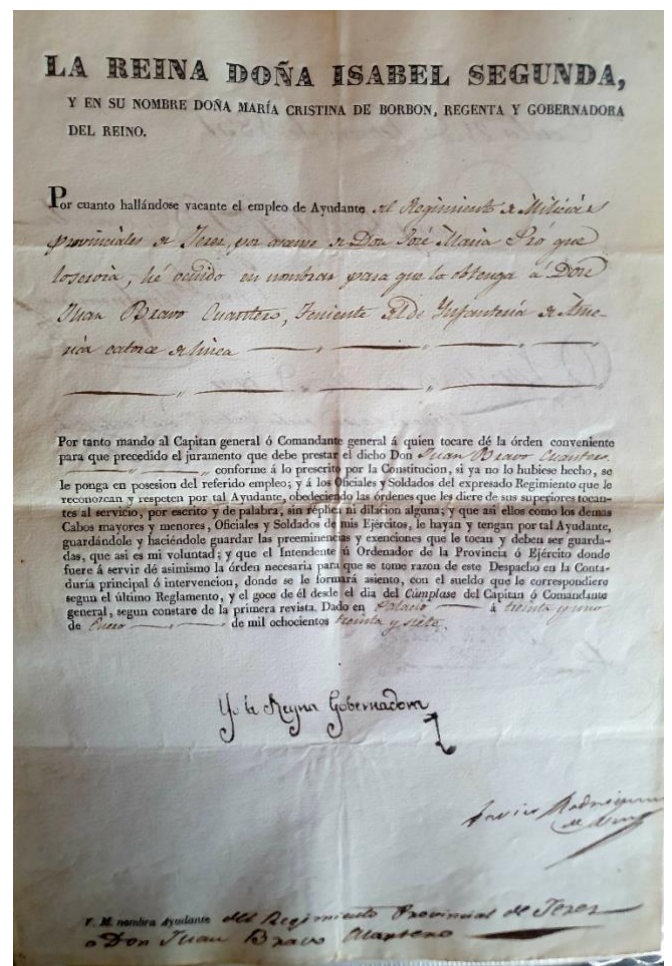 LA REINA DOÑA ISABEL SEGUNDA,
Y EN SU NOMBRE DOÑA MARÍA CRISTINA DE BORBON, REGENTA Y GOBERNADORA
DEL REINO.
Por cuanto hallándose vacante el empleo de Ayudante del Regimiento de Milicias
provinciales de Jerez, por ascenso de Don José Maria Pró que
lo servia, hé venido en nombrar para que lo obtenga á Don
Juan Bravo Cuartero, Teniente de Infanteria de Ame-
rica catorce de linea
Por tanto mando al Capitan general ó Comandante general á quien tocare dé la órden conveniente
para que precedido el juramento que debe prestar el dicho Don Juan Bravo Cuartero
conforme á lo prescrito por la Constitucion, si ya no lo hubiese hecho, se
le ponga en posesion del referido empleo; y á los Oficiales y Soldados del expresado Regimiento que le
reconozcan y respeten por tal Ayudante, obedeciendo las órdenes que les diere de sus superiores tocan-
tes al servicio, por escrito y de palabra, sin réplica ni dilacion alguna; y que asi ellos como los demas
Cabos mayores y menores, Oficiales y Soldados de mis Ejércitos, le hayan y tengan por tal Ayudante,
guardándole y haciéndole guardar las preeminencias y exenciones que le tocan y deben ser guarda-
das, que asi es mi voluntad; y que el Intendente ú Ordenador de la Provincia ó Ejército donde
fuere á servir dé asimismo la órden necesaria para que se tome razon de este Despacho en la Conta-
duría principal ó intervencion, donde se le formará asiento, con el sueldo que le correspondiere
segun el último Reglamento, y el goce de él desde el dia del Cúmplase del Capitan ó Comandante
general, segun constare de la primera revista. Dado en Palacio á treinta y uno
de Enero de mil ochocientos treinta y siete.
Yo la Reyna Gobernadora
V. M. nombra Ayudante del Regimiento Provincial de Jerez
a Don Juan Bravo Cuartero